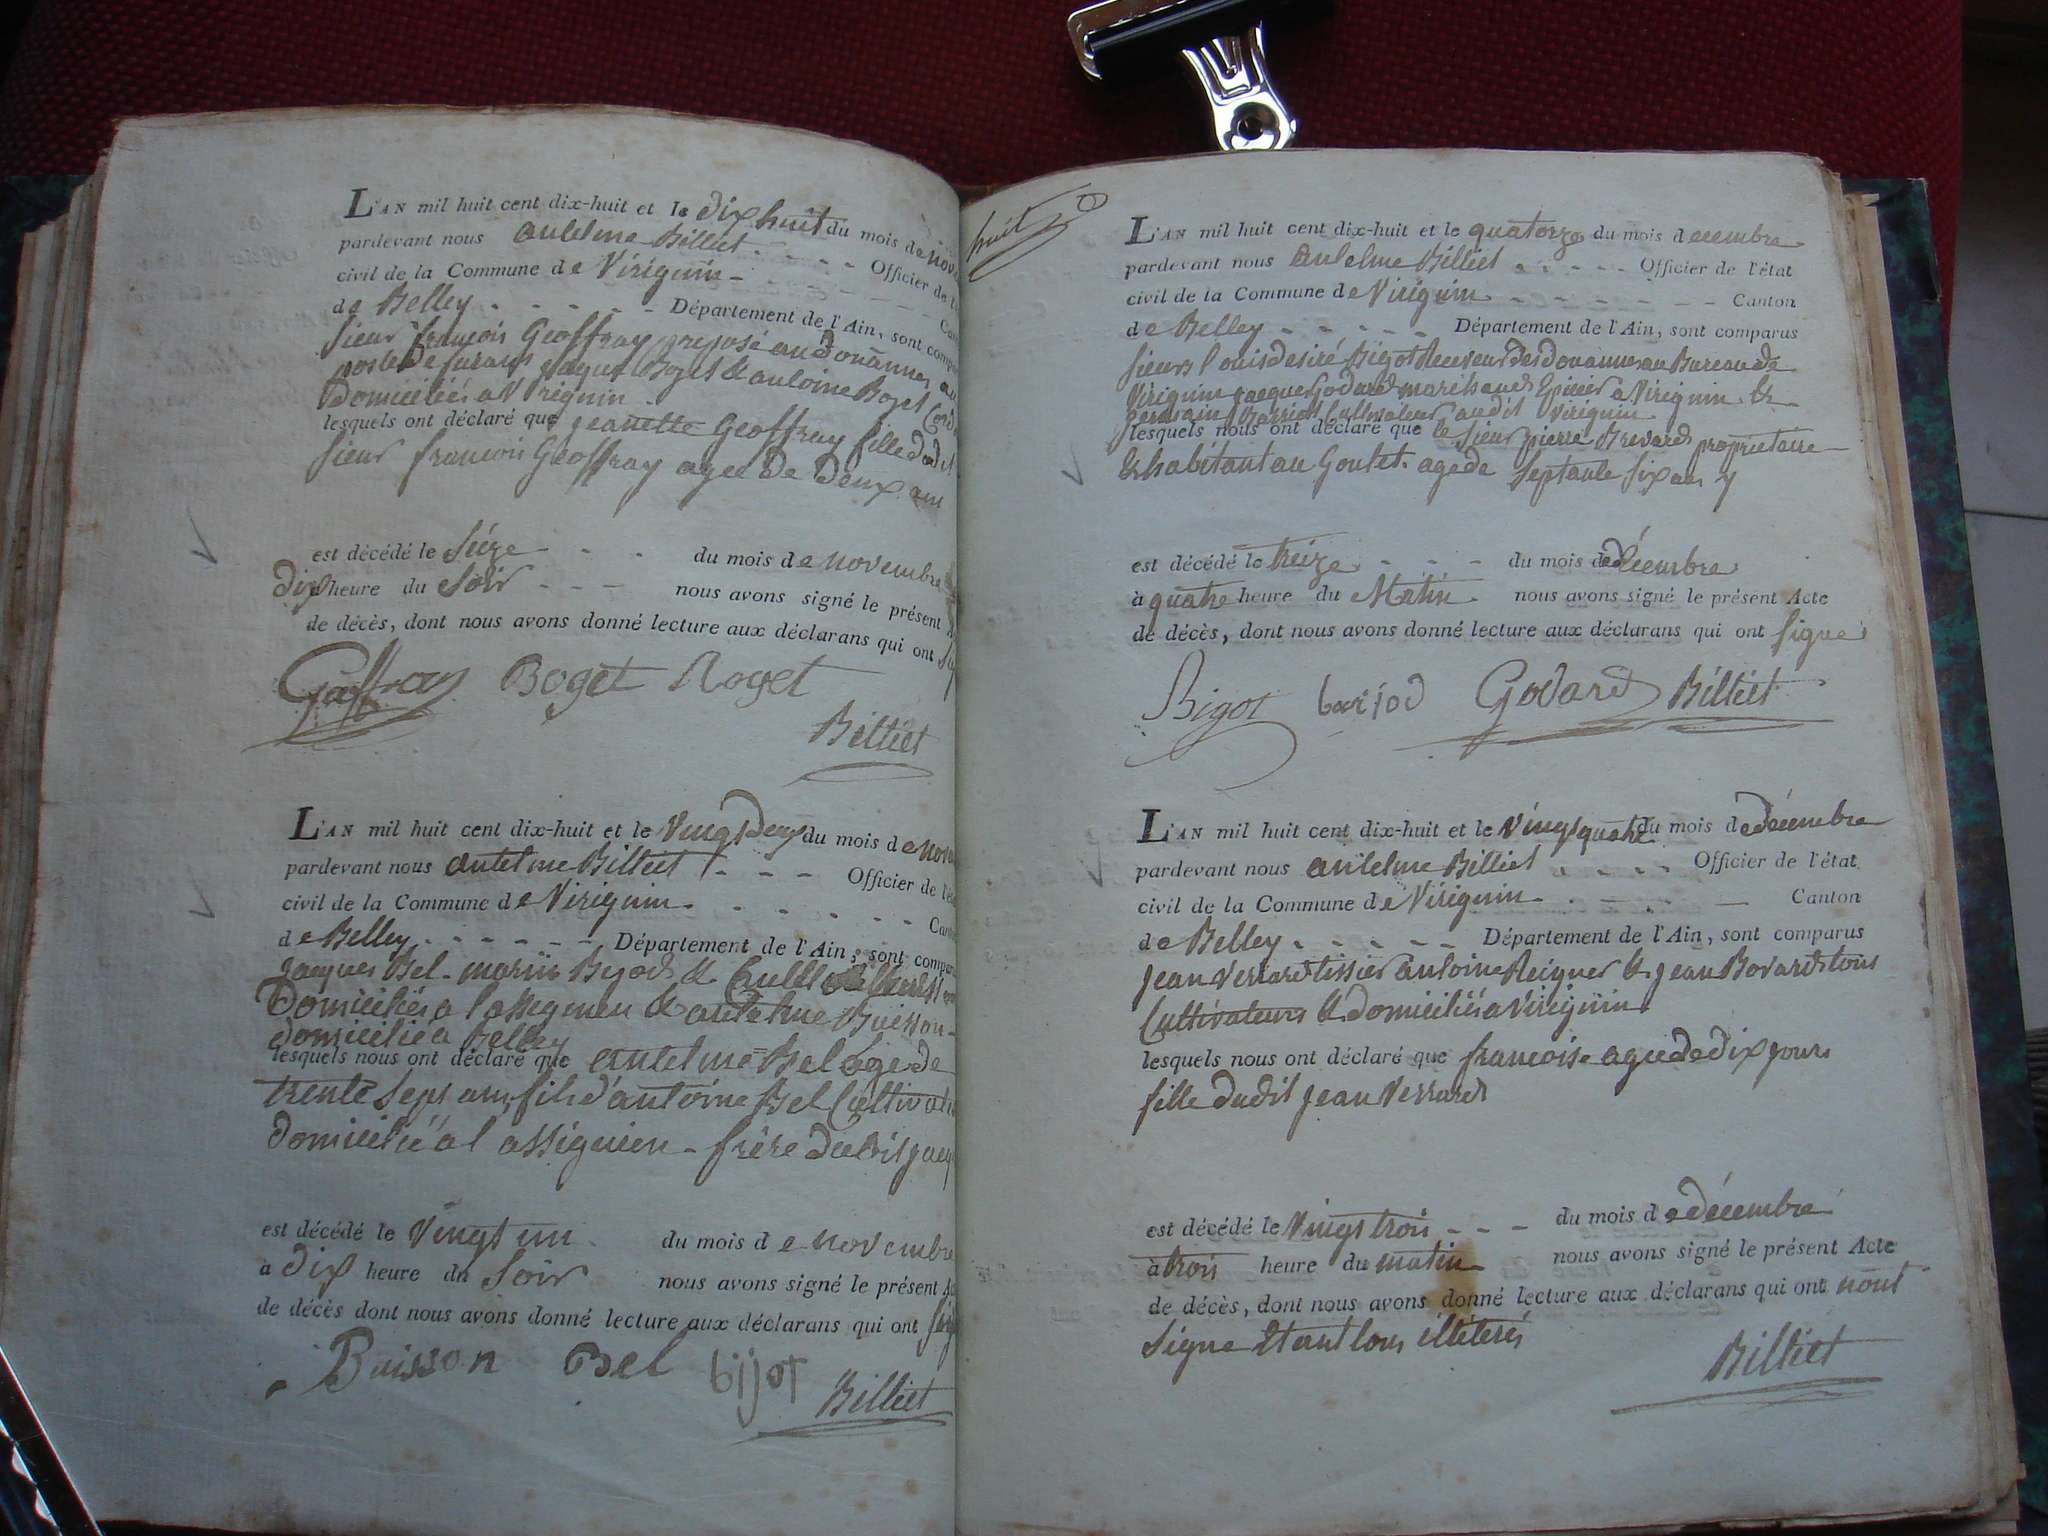 L'AN mil huit cent dix-huit et le dix huit du mois de nov
pardevant nous antelme Billiet - - - - Officier de l'
civil de la Commune de Virignin - - - - - - - Can
de Belley - - - - - Département de l'Ain, sont comp
sieur françois Geoffray preposé au Douannes au
poste de jaques Boget & antoine Boget
Domiciliés a Virignin -
lesquels ont déclaré que jeanette Geoffray fille dudit
sieur françois Geoffray agee de Deux ans
est décédé le Siéze - - - du mois de novembre
dix heure du Soir - - - nous avons signé le présent A
de décès, dont nous avons donné lecture aux déclarans qui ont
Geoffray Boget Boget
Billiet
L'AN mil huit cent dix-huit et le Vingt Deux du mois de nov
pardevant nous antelme Billiet - - - Officier de l'é
civil de la Commune de Virignin - - - - - - - Can
de Belley - - - - - - Département de l'Ain; sont compa
jacques Bel - Bijod &
Domiciliés a l assegnieu & antelme Buisson -
domicilié a belley
lesquels nous ont déclaré que antelme Bel âge de
trente Sept ans, fils d'antoine Bel Cultivat
domicilié a l assignieu - frère dudit jacq
est décédé le Vingt un - du mois de novembre
à Dix heure du Soir nous avons signé le présent A
de décès dont nous avons donné lecture aux déclarans qui ont sig
Buisson Bel bijot
Billiet
huit
L'AN mil huit cent dix-huit et le quatorze du mois decembre
pardevant nous antelme Billiet - - - - - Officier de l'état
civil de la Commune de Virignin - - - - - - - Canton
de Belley - - - - - Département de l'Ain, sont comparus
sieurs Louis desiré Bigot Receveur des douannes au Bureau de
Virignin jacques Godard marchand Epicier a Virignin &
germain Barriod Cultivateur audit Virignin
lesquels nous ont déclaré que le sieur pierre Brevard proprietaire
& habitant au Goutet. age de Septante Six ans
est décédé le treize - - - du mois de décembre
à quatre heure du Matin - nous avons signé le présent Acte
de décès, dont nous avons donné lecture aux déclarans qui ont signe
Bigot barjod Godard Billiet
L'AN mil huit cent dix-huit et le Vingt quatre du mois de décembre
pardevant nous antelme Billiet - - - - Officier de l'état
civil de la Commune de Virignin - - - - - Canton
de Belley - - - - - Département de l'Ain, sont comparus
jean Verrard tissier antoine Reigner & jean Bovard tous
Cultivateurs & domiciliés a Virignin
lesquels nous ont déclaré que francoise agee de dix jours
fille dudit jean Verrard
est décédé le Vingt trois - - - du mois de décembre
à trois heure du matin nous avons signé le présent Acte
de décès, dont nous avons donné lecture aux déclarans qui ont nont
signe Etant tous illiterés
Billiet